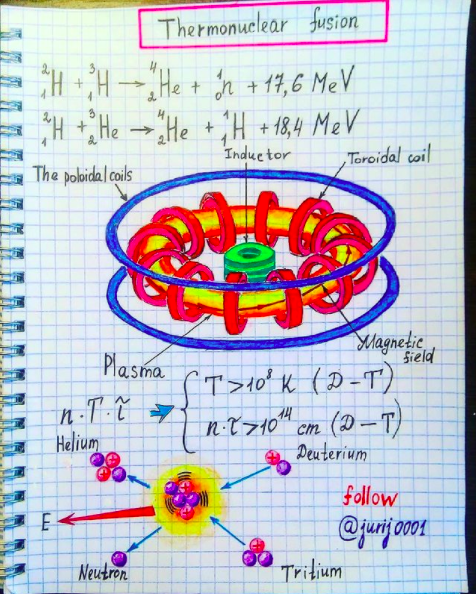 Thermonuclear fusion
²₁H + ³₁H → ⁴₂He + ¹₀n + 17,6 MeV
²₁H + ³₂He → ⁴₂He + ¹₁H + 18,4 MeV
Inductor
Toroidal coil
The poloidal coils
Magnetic field
Plasma
n·T·τ̃
T > 10⁸ K (D-T)
n·τ > 10¹⁴ cm (D-T)
Helium
Deuterium
E
follow
@jurij0001
Neutron
Tritium